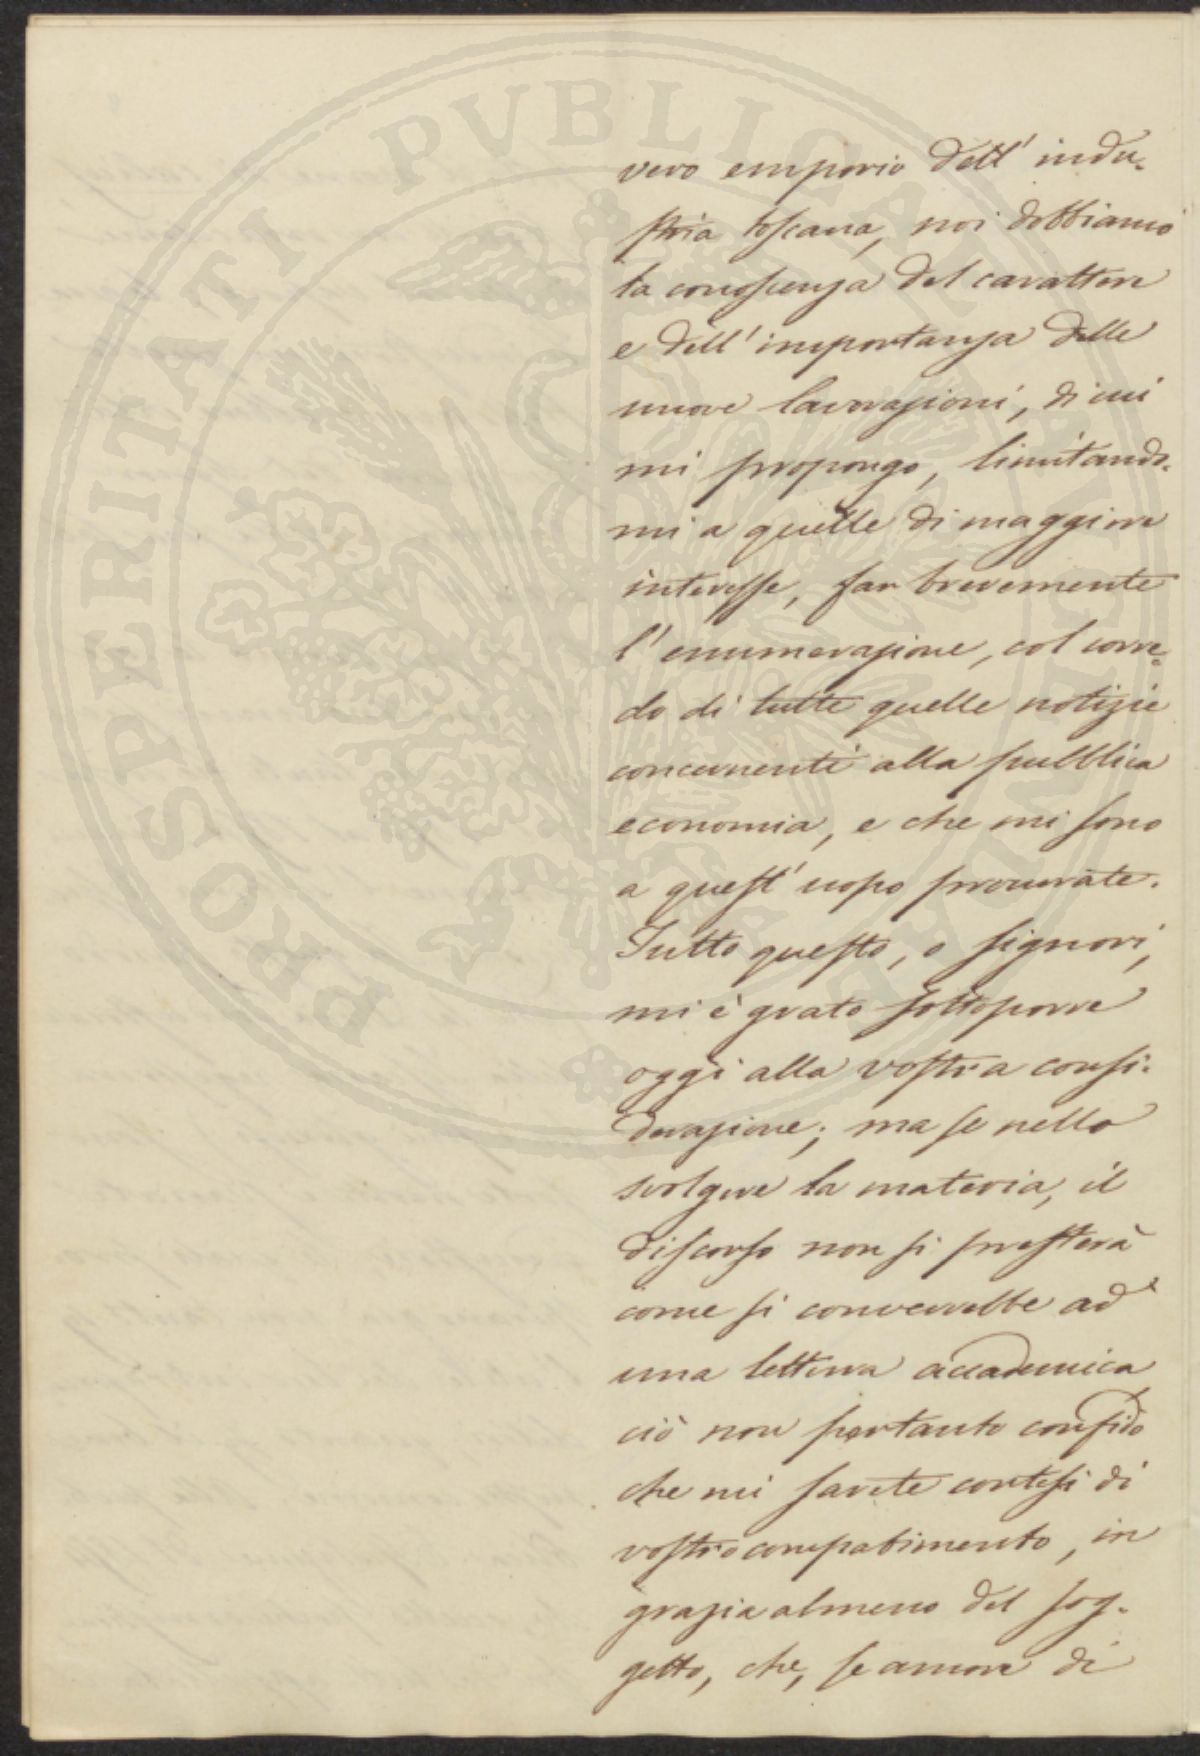 PROSPERITATI PVBLICAE AVGENDAE
vero emporio dell' indu-
stria toscana, noi dobbiamo
la conoscenza del carattere
e dell' importanza delle
nuove lavorazioni, di cui
mi propongo, limitando-
mi a quelle di maggiore
interesse, far brevemente
l' enumerazione, col corre-
do di tutte quelle notizie
concernenti alla pubblica
economia, e che mi sono
a quest' uopo procurate.
Tutto questo, o signori,
mi è grato sottoporre
oggi alla vostra consi-
derazione; ma se nello
svolgere la materia, il
discorso non si presterà
come si converrebbe ad
una lettura accademica
ciò non pertanto confido
che mi sarete cortesi di
vostro compatimento, in
grazia almeno del sog-
getto, che, se amore di